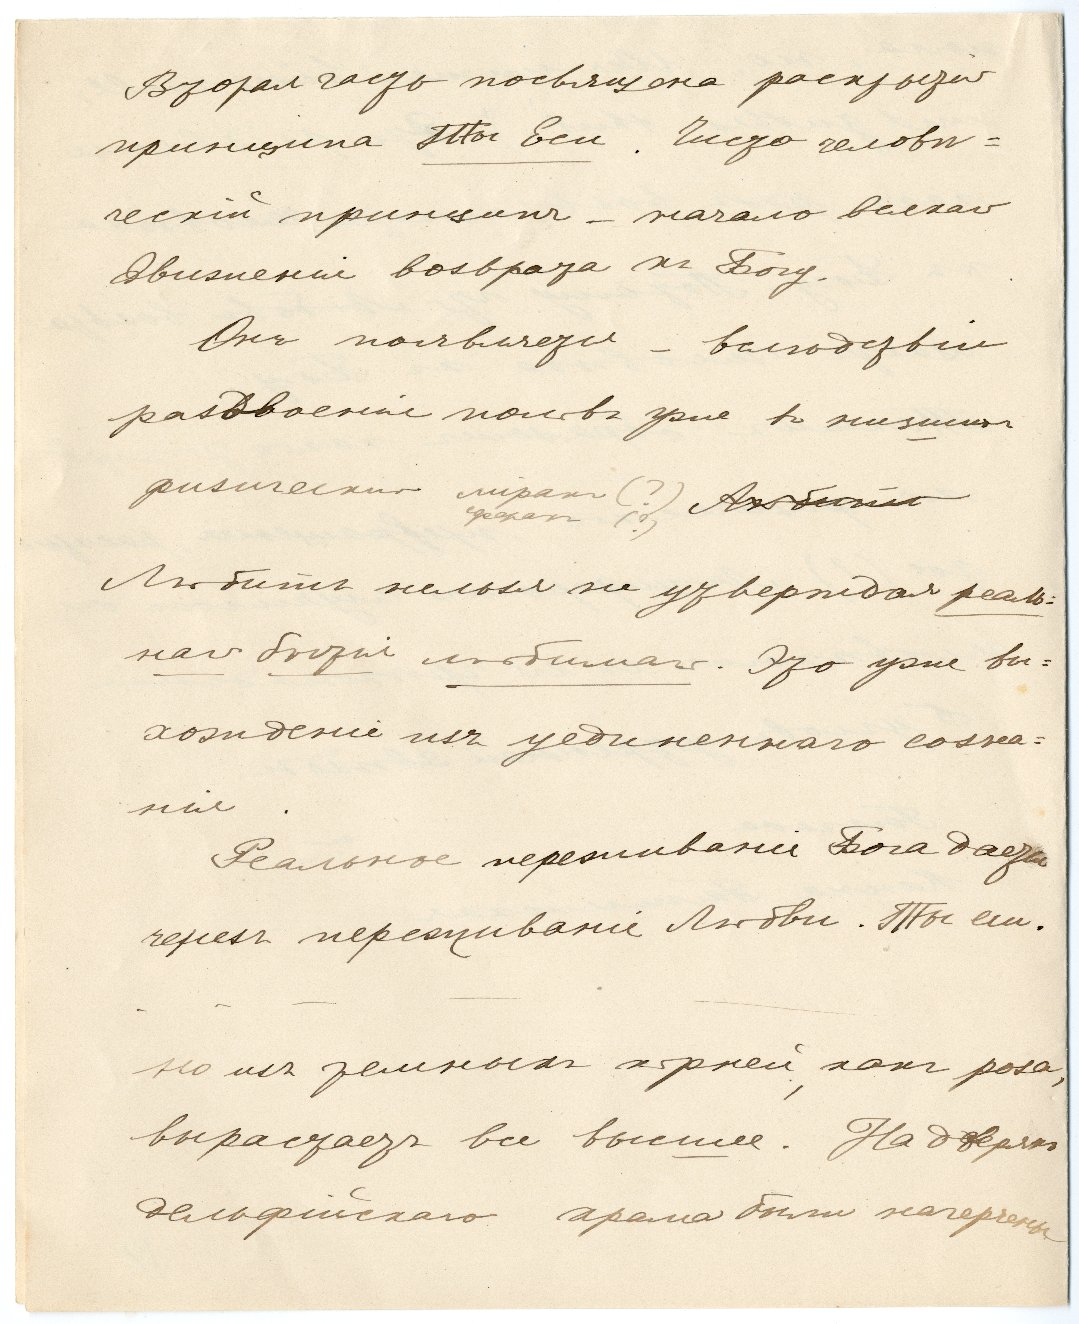 Вторая часть посвящена раскрытію
принципа Ты Еси. Чисто человѣ=
ческій принципъ – начало всякаго
движенія возврата къ Богу.
Онъ появляется – вслѣдствіи
раздвоенія половъ уже въ низшихъ
физическихъ мірахъ (?) Любить
сферахъ (?)
Любить нельзя не утверждая реаль=
наго бытія любимаго. Это уже вы=
хожденіе изъ уединеннаго созна=
нія.
Реальное переживаніе Бога дается
черезъ переживаніе Любви. Ты еси.
но изъ земныхъ корней, какъ роза,
вырастаетъ все высшее. На дверяхъ
дельфійскаго храма были начерчены